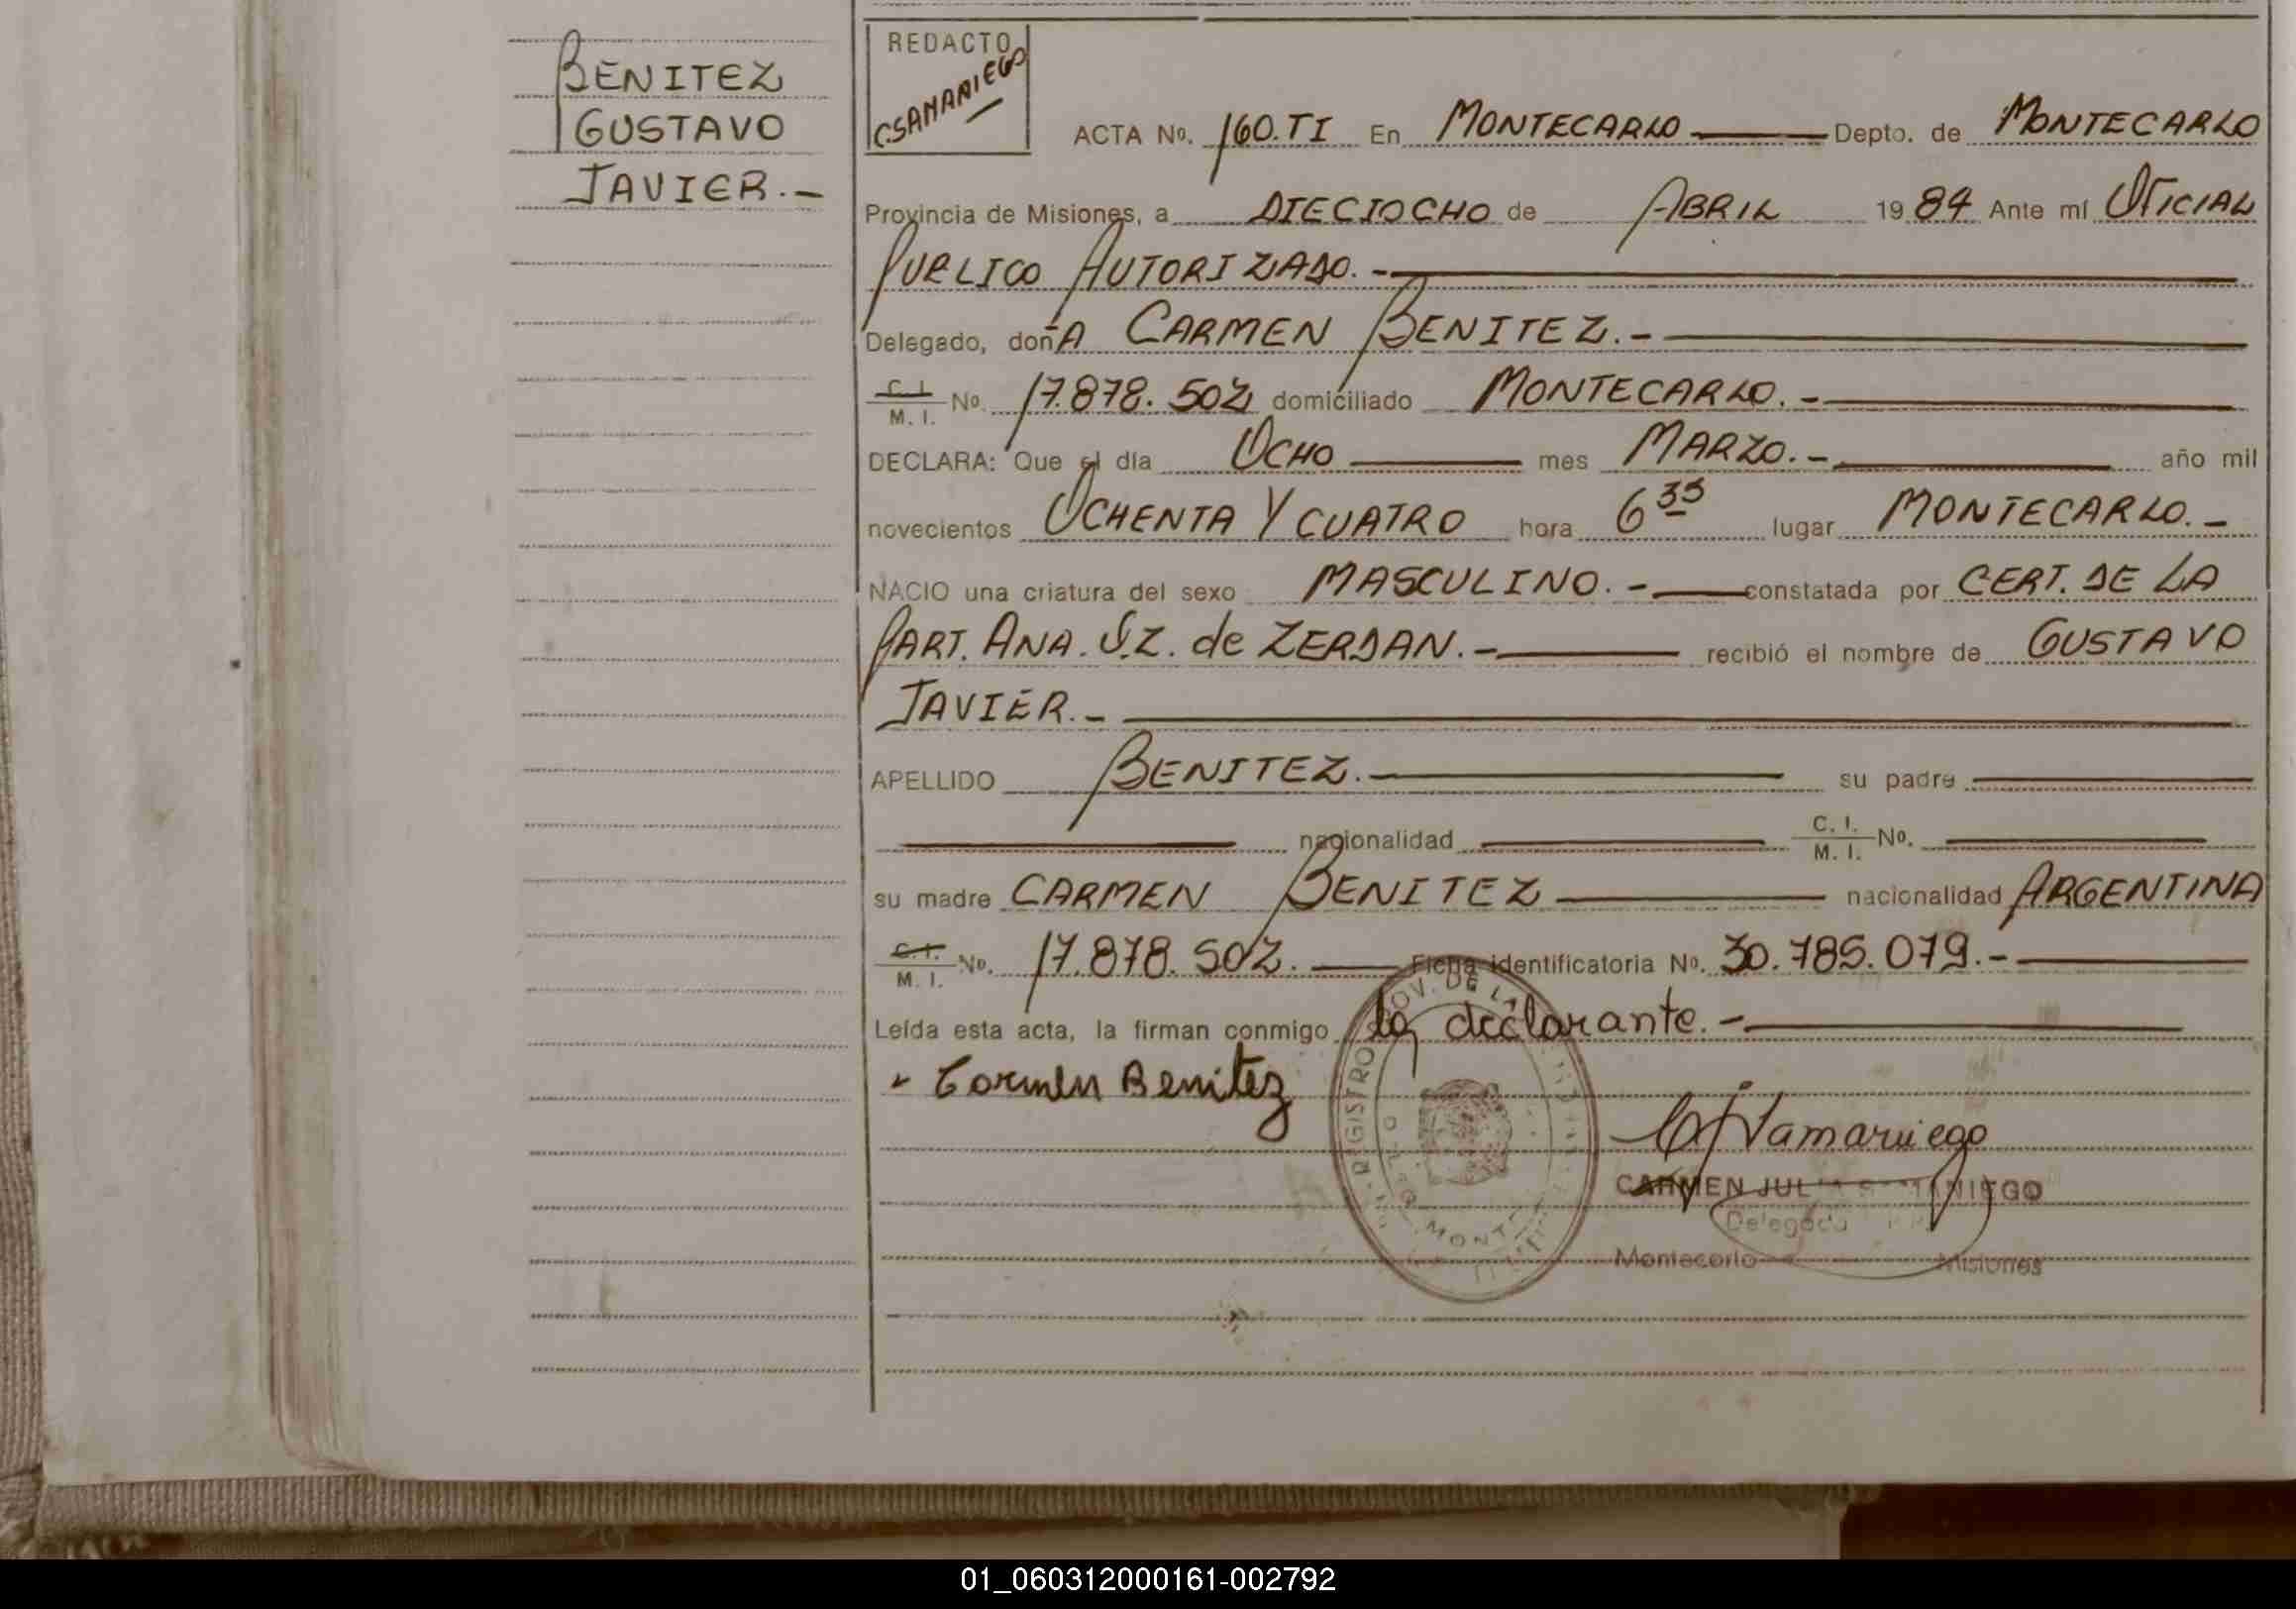 BENITEZ
GUSTAVO
JAVIER.-
REDACTO
CSAMANIEGO
ACTA No. 160.TI En MONTECARLO Depto. de MONTECARLO
Provincia de Misiones, a DIECIOCHO de ABRIL 1984 Ante mí OFICIAL
PUBLICO AUTORIZADO.-
Delegado, doñA CARMEN BENITEZ.-
C. I. / M. I. No. 17.878.502 domiciliado MONTECARLO.-
DECLARA: Que el día OCHO mes MARZO.- año mil
novecientos OCHENTA Y CUATRO hora 6 35 lugar MONTECARLO.-
NACIO una criatura del sexo MASCULINO.- constatada por CERT. DE LA
PART. ANA. S.Z. de ZERDAN.- recibió el nombre de GUSTAVO
JAVIER.-
APELLIDO BENITEZ.- su padre
nacionalidad C. I. / M. I. No.
su madre CARMEN BENITEZ nacionalidad ARGENTINA
C. I. / M. I. No. 17.878.502. Ficha identificatoria No. 30.785.079.-
Leída esta acta, la firman conmigo la declarante.-
Carmen Benitez
CJSamaniego
CARMEN JULIA SAMANIEGO
Delegada
Montecarlo Misiones
REGISTRO PROV. DE LAS
01_060312000161-002792